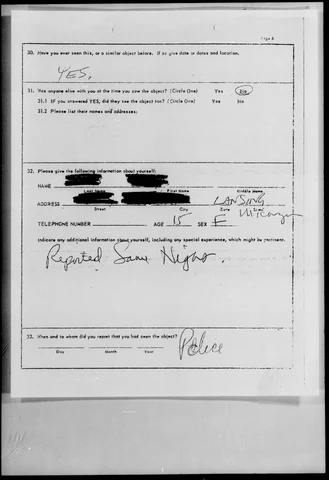 Page 8
30. Have you ever seen this, or a similar object before. If so give date or dates and location.
YES.
31. Was anyone else with you at the time you saw the object? (Circle One) Yes No
31.1 IF you answered YES, did they see the object too? (Circle One) Yes No
31.2 Please list their names and addresses:
32. Please give the following information about yourself:
NAME
Last Name First Name Middle Name
ADDRESS LANSING
Street City Zone State
TELEPHONE NUMBER AGE 15 SEX F
Indicate any additional information about yourself, including any special experience, which might be pertinent.
Reported Same Night.
33. When and to whom did you report that you had seen the object? Police
Day Month Year